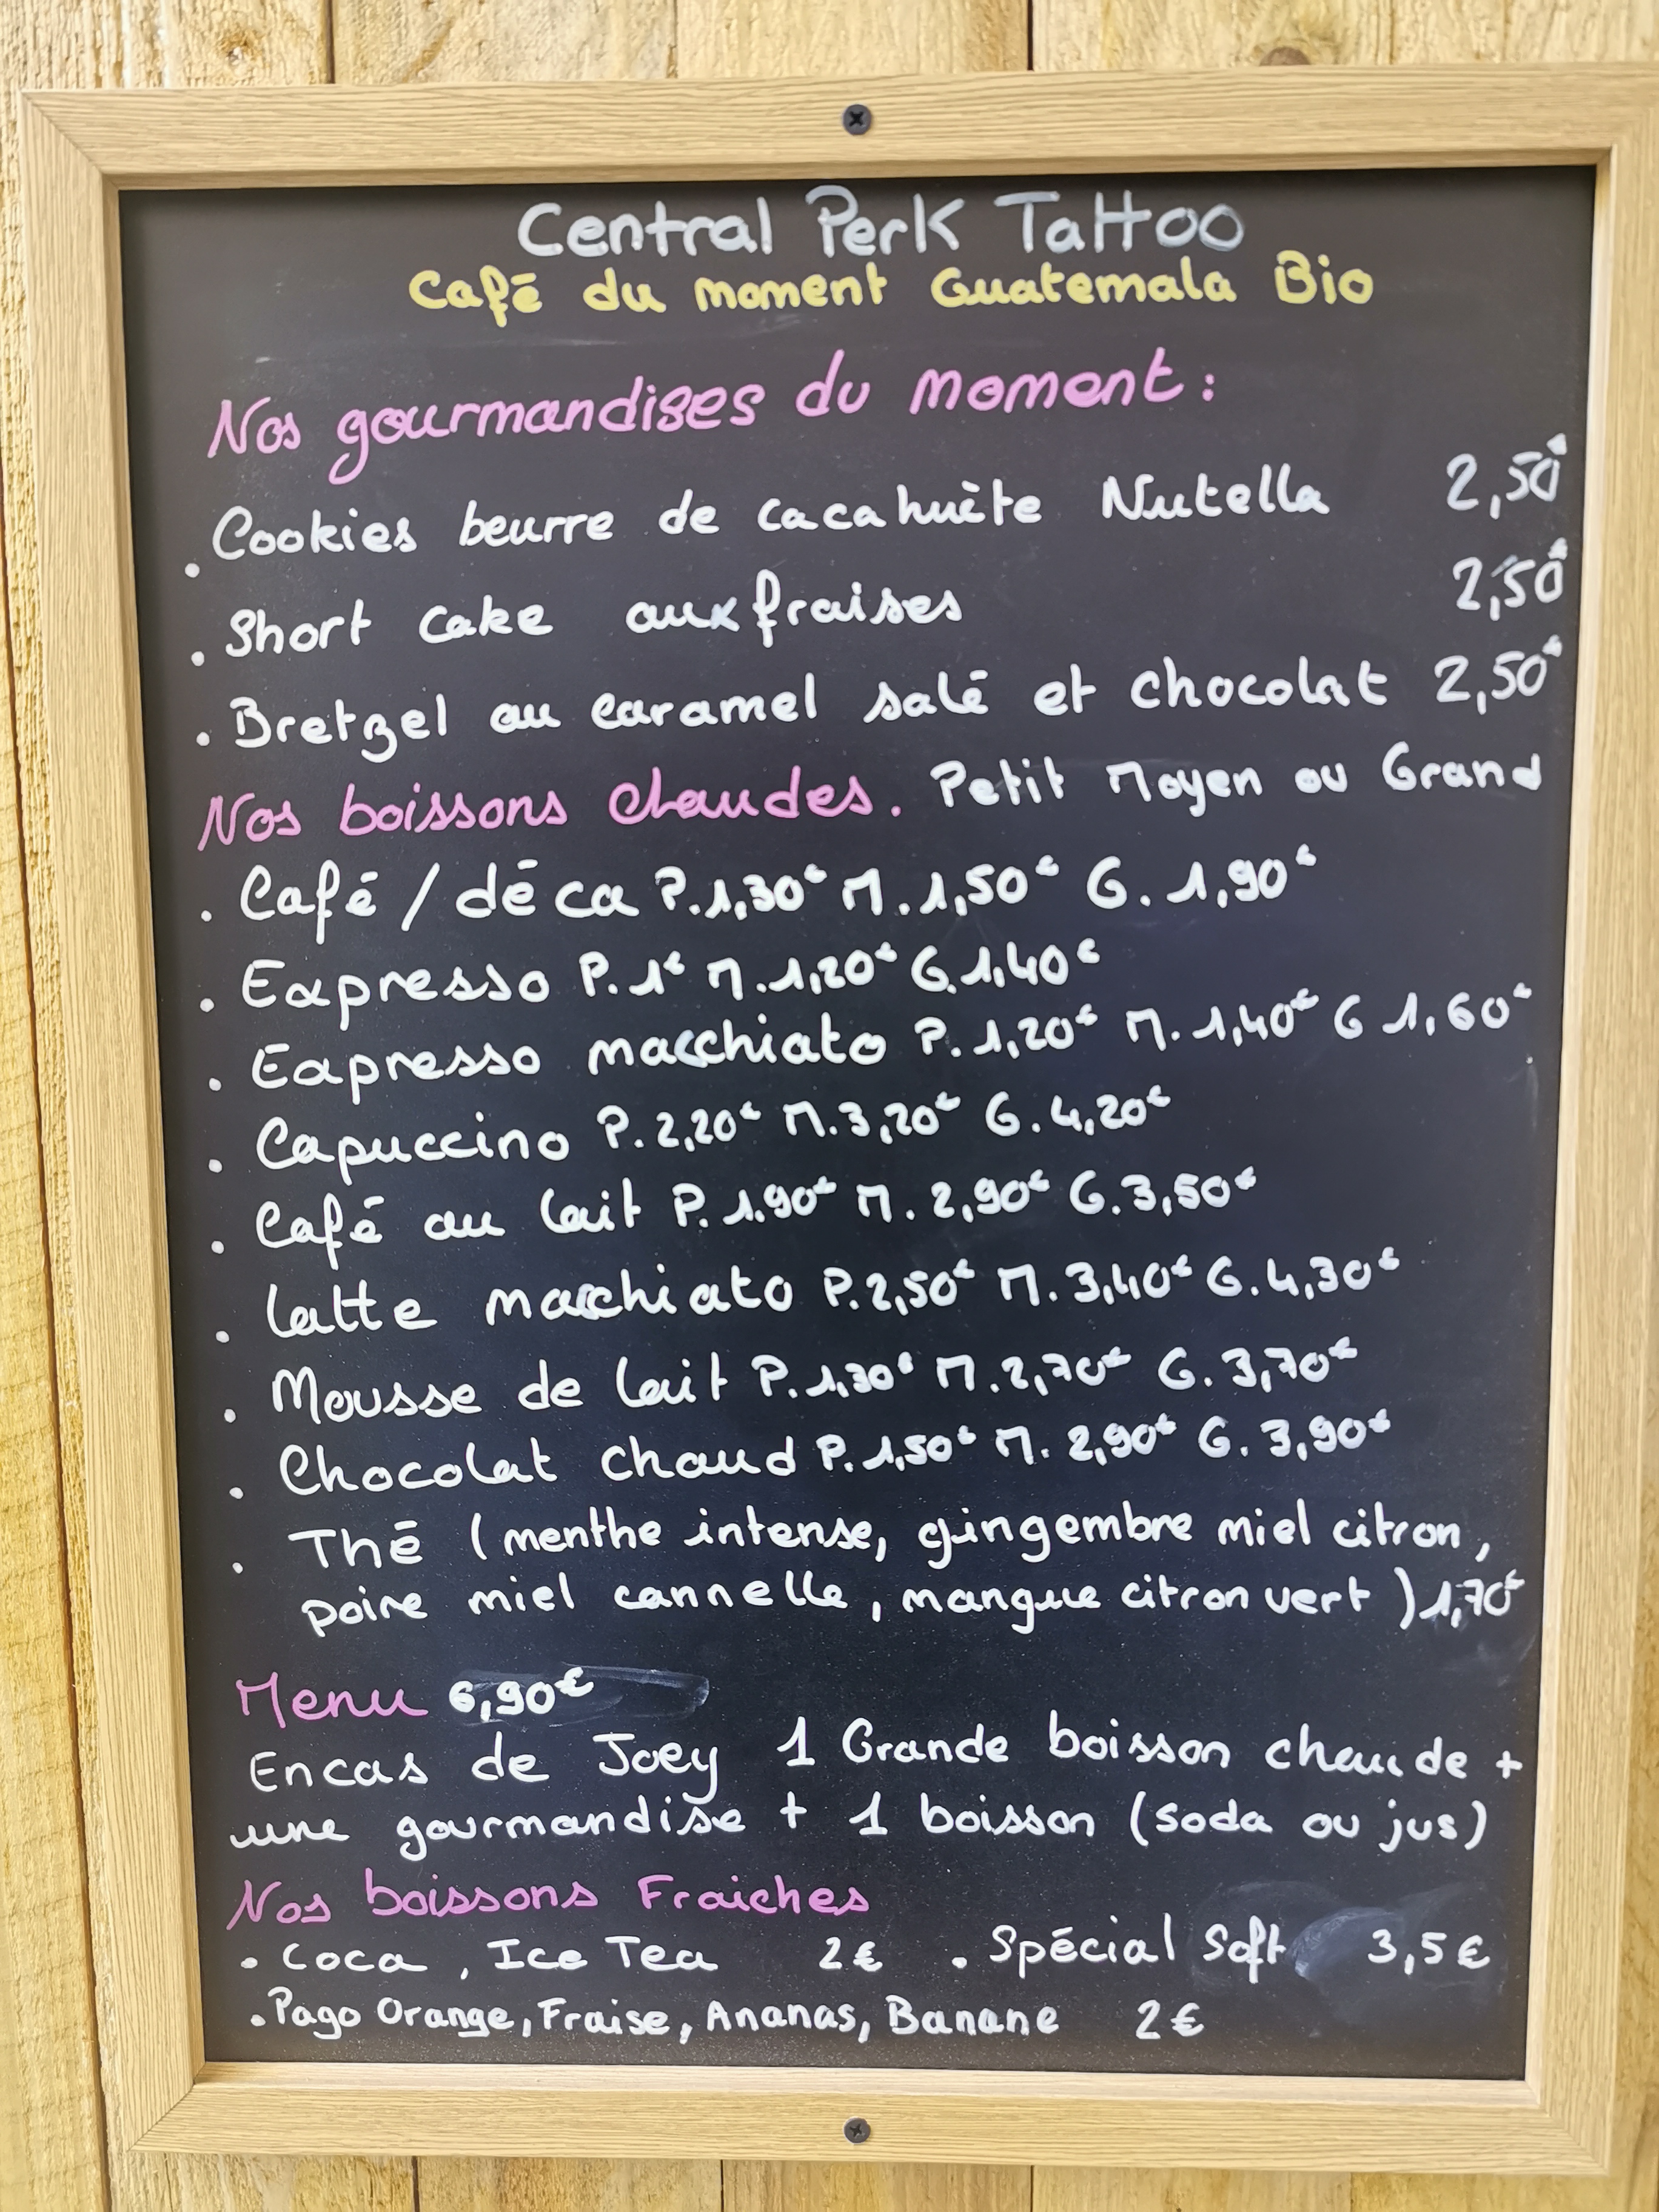 Central Perk Tattoo
Café du moment Guatemala Bio
Nos gourmandises du moment :
. Cookies beurre de cacahuète Nutella 2,50€
. Short cake aux fraises 2,50€
. Bretzel au caramel salé et chocolat 2,50€
Nos boissons chaudes. Petit Moyen ou Grand
. Café / déca P.1,30€ M.1,50€ G.1,90€
. Expresso P.1€ M.1,20€ G.1,40€
. Expresso macchiato P.1,20€ M.1,40€ G 1,60€
. Capuccino P.2,20€ M.3,20€ G.4,20€
. Café au lait P.1.90€ M.2,90€ G.3,50€
. latte macchiato P.2,50€ M.3,40€ G.4,30€
. Mousse de lait P.1,30€ M.2,70€ G.3,70€
. Chocolat chaud P.1,50€ M.2,90€ G.3,90€
. Thé (menthe intense, gingembre miel citron,
poire miel cannelle, mangue citron vert) 1,70€
Menu 6,90€
Encas de Joey 1 Grande boisson chaude +
une gourmandise + 1 boisson (soda ou jus)
Nos boissons Fraiches
. Coca, Ice Tea 2€ . Spécial Soft 3,5€
. Pago Orange, Fraise, Ananas, Banane 2€